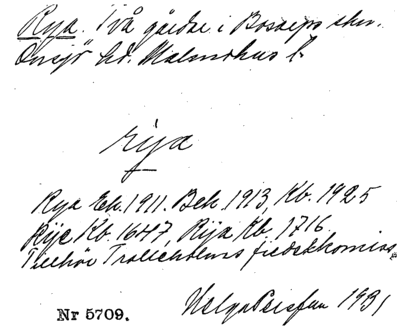 Rya. Två gårdar i Bosarps skn.
Onsjö hd. Malmöhus l.
rija
Rya Ek. 1911. Bek. 1913, Kb. 1925
Rije Kb. 1647, Rija Kb. 1716
Tillhör Trolleholms fideikommiss.
Nr 5709. Helga 1931